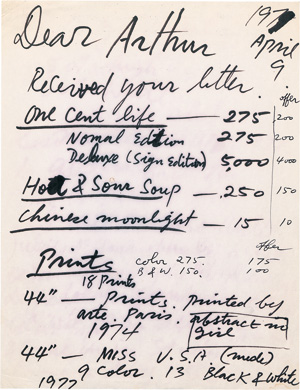 197
Dear Arthur
April
9
Received your letter.
offer
One Cent life — 275 200
Nomal Edition 275 200
Deluxe (Sign Edition) 5,000 4000
Hot & Sour Soup — 250 150
Chinese moonlight — 15 10
offer
Prints color 275. 175
B & W. 150. 100
18 Prints
44" — Prints. Printed by
arte. Paris. Abstract in
1974 girl
44" — MISS U.S.A. (nude)
9 Color. 13 Black & White
1977